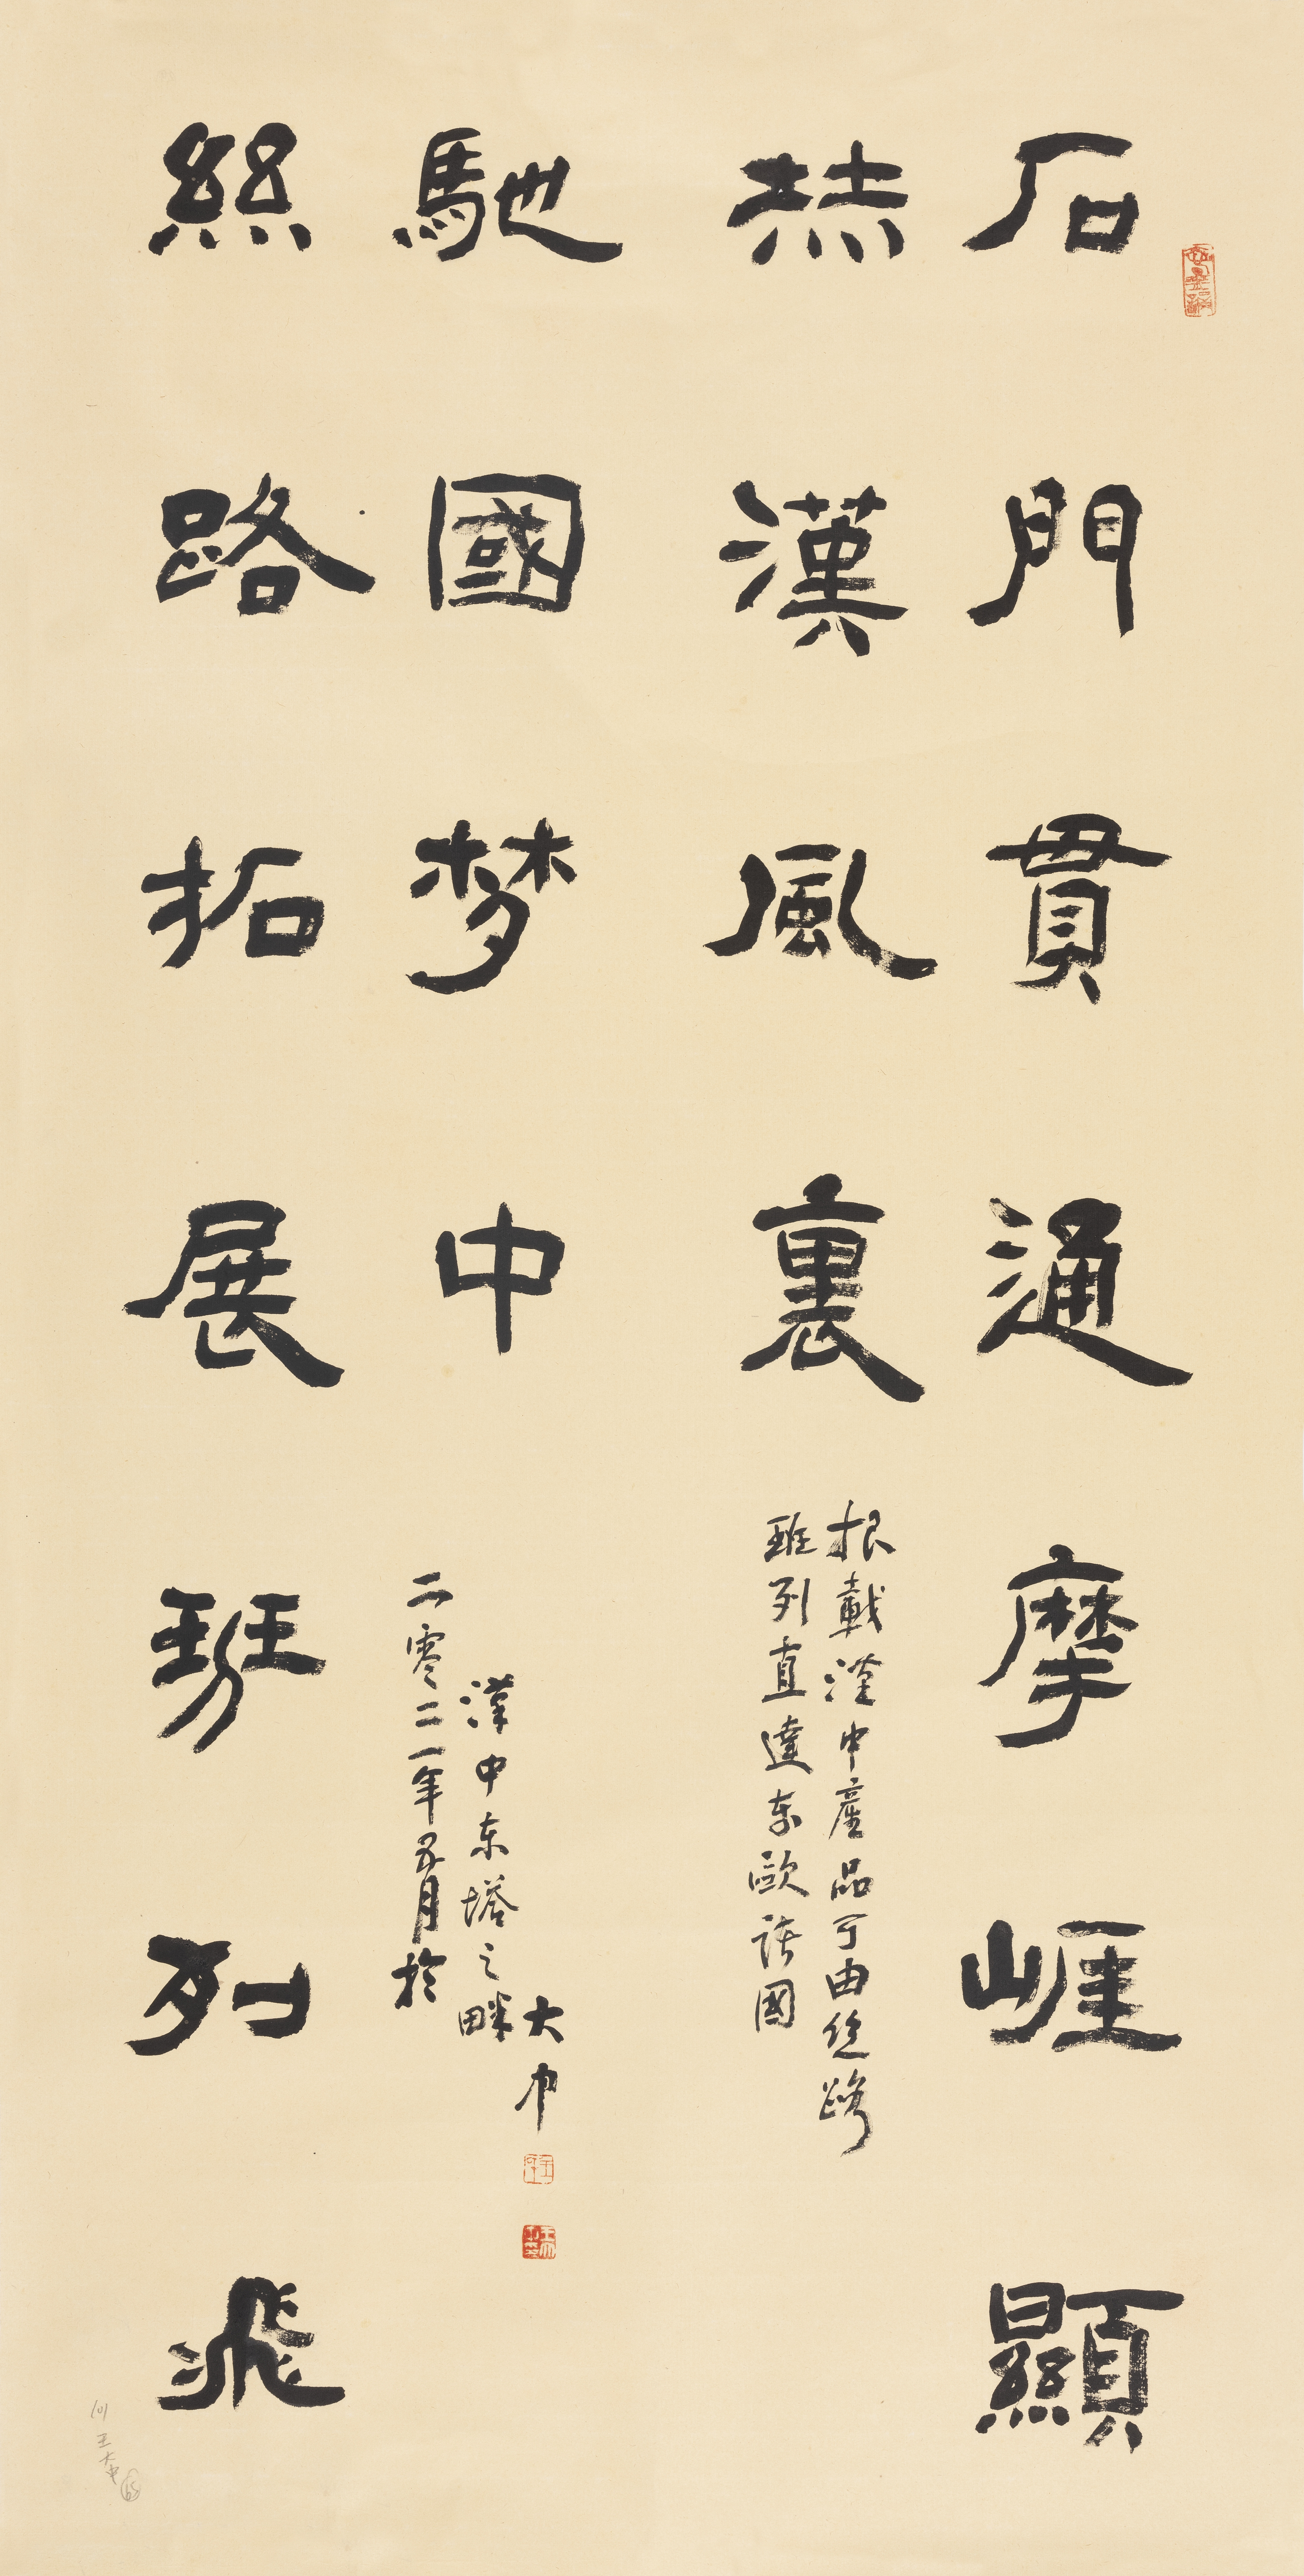 石門貫通摩崕顯
赫漢風裏
报載漢中産品可由丝路
班列直達东歐诸國
絲路拓展班列飛
馳國梦中
二零二一年五月於
漢中东塔之畔
大中
王大中